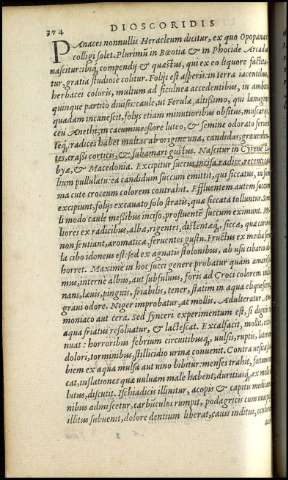 374 DIOSCORIDIS
PAnaces nonnullis Heracleum dicitur, ex quo Opopanax
colligi solet. Plurimũ in Bœotia & in Phocide Arcadia
nascitur: ibiq; compendij & quæstus, qui ex eo liquore facitatur
gratia studiose colitur. Folijs est asperis: in terra iacentibus,
herbacei coloris, multum ad ficulnea accedentibus, in ambitu
quinque partitò diuisis: caule, ut Ferulæ, altissimo, qui lanugine
quadam incanescit, folijs etiam minutioribus obsitus, muscarij
ceu Anethi, in cacumine: flore luteo, & semine odorato ac feruenti.
radices habet multas ab origine una, candidas, graueolentes,
crassi corticis, & subamari gustus. Nascitur in Cyrene
bya, & Macedonia. Excipitur succus, incisa radice, recenti
lium pullulatu: ea candidum succum emittit, qui siccatus, in summa
cute crocum colorem contrahit. Effluentem autem succum
excipiunt, folijs excauato solo stratis, quæ siccata tolluntur.
modo caule messibus inciso, profluente succum eximunt. Meliores
ex radicibus, alba, rigentes, distentæq, siccæ, quæ cariem
non sentiant, aromaticæ, feruentes gustu. Fructus ex media
la cibo idoneus est: sed ex agnatis stolonibus, ab usu cibario
horret. Maxime in hoc succi genere probatur quàm amarissimus,
interne albus, aut subfuluus, foris ad Croci colorem inclinans,
lauis, pinguis, friabilis, tener, statim in aqua eliquescens,
graui odore. Niger improbatur, ac mollis. Adulteratur Ammoniaco
aut cera. Sed synceri experimentum est, si digitis
aqua friatus resoluatur, & lactescat. Excalfacit, mollit, extenuat:
horroribus febrium circuitibusq;, uulsis, ruptis, lateris
dolori, torminibus, stillicidio urinæ conuenit. Contra uesicæ scabiem
ex aqua mulsa aut uino bibitur: menses trahit,
inflationes quæ uuluam male habent, duritiasq, ex melle
discutit. Ischiadicis illinitur, acopis & capitis medicaminibus
admiscetur, carbunculos rumpit, podagricis cum uua
illitus subuenit, dolore dentium liberat, cauis inditus,